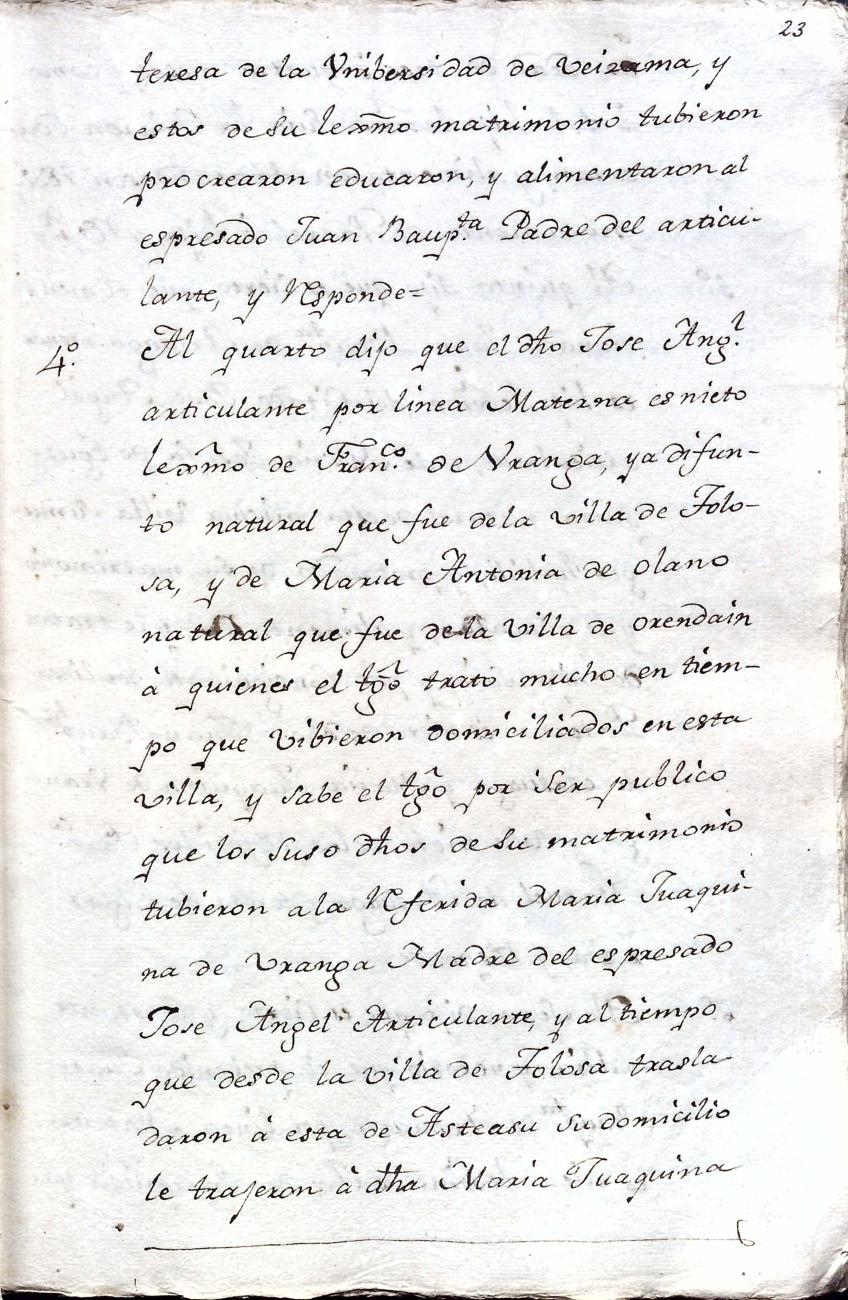 23
teresa de la Vnibersidad de Veizama, y
estos de su lexmo matrimonio tubieron
procrearon educaron, y alimentaron al
espresado Juan Baup.ta Padre del articu-
lante, y Responde=
4.º Al quarto dijo que el dho Jose Ang.l
articulante por linea Materna es nieto
lexmo de Fran.co de Vranga, ya difun-
to natural que fue de la villa de Tolo-
sa, y de Maria Antonia de Olano
natural que fue de la Villa de Orendain
à quienes el tgo trato mucho en tiem-
po que vibieron domiciliados en esta
villa, y sabe el tgo por ser publico
que los suso dhos de su matrimonio
tubieron a la Referida Maria Juaqui-
na de Vranga Madre del espresado
Jose Angel Articulante, y al tiempo
que desde la villa de Tolosa trasla
daron à esta de Asteasu su domicilio
le trajeron à dha Maria Juaquina